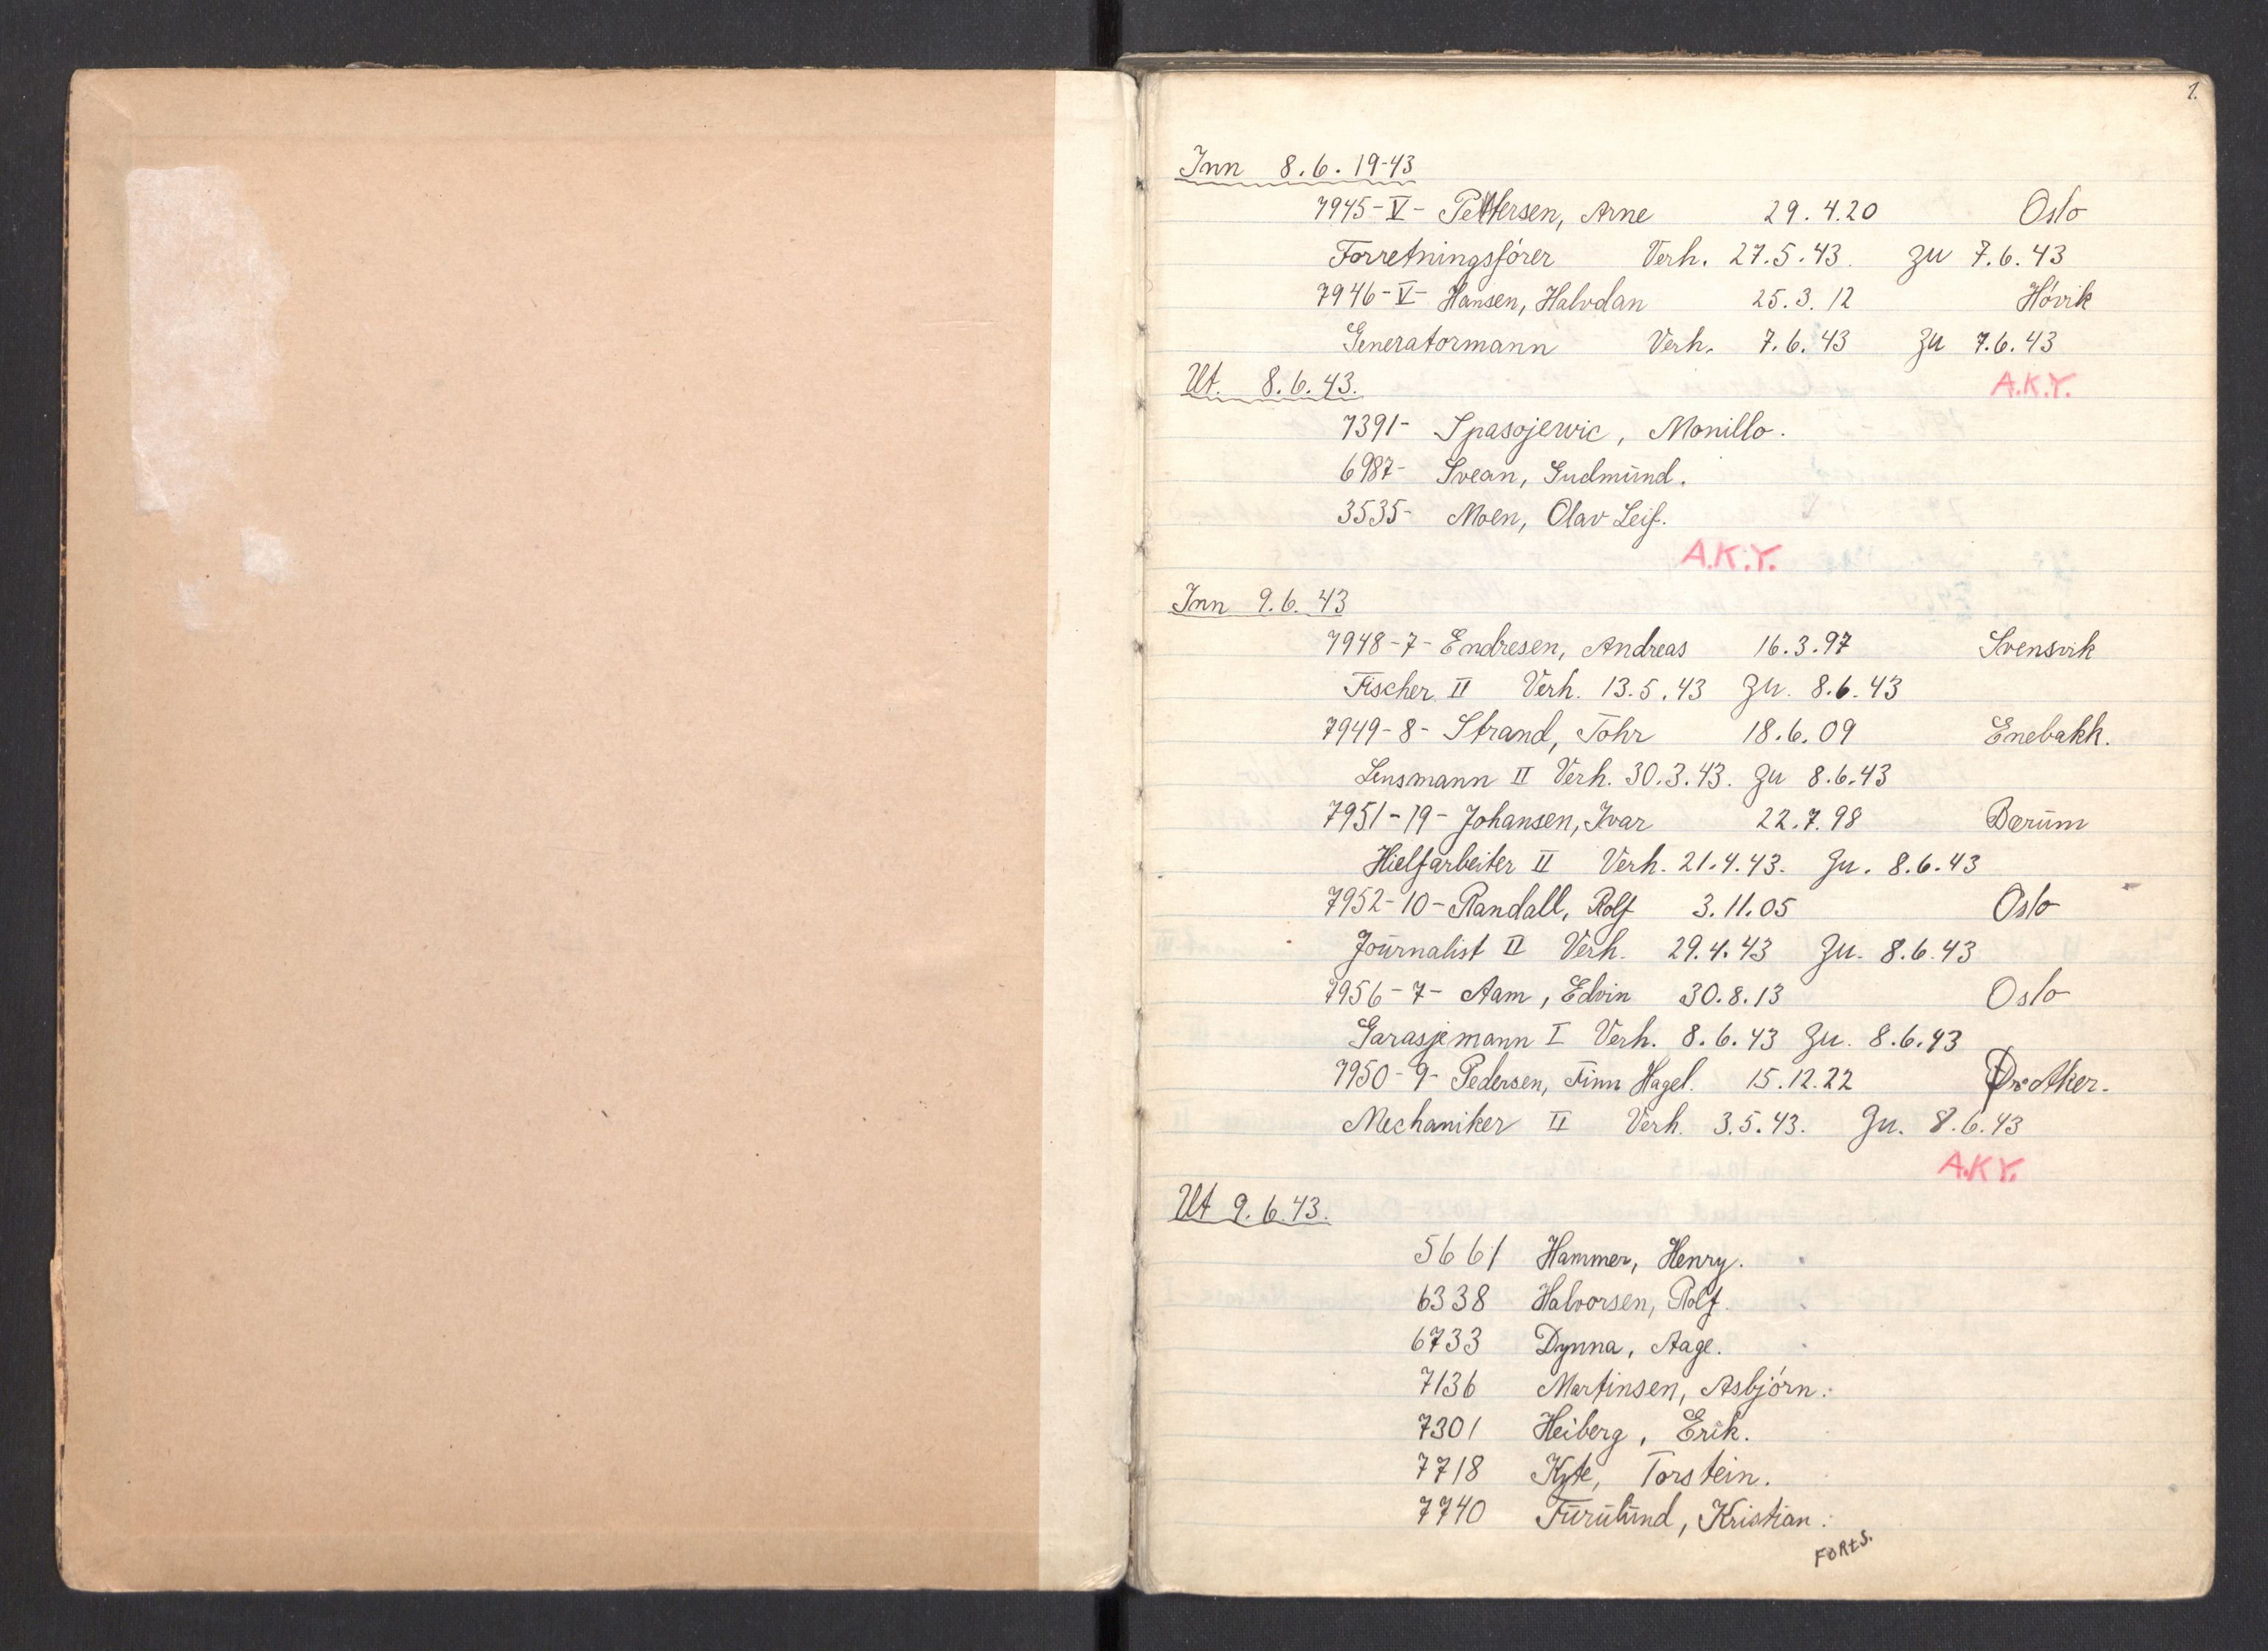 1.
Inn 8.6.19-43
7945-V- Pettersen, Arne 29.4.20 Oslo
Forretningsfórer Verh. 27.5.43. zu 7.6.43
7946-V- Hansen, Halvdan 25.3.12 Hóvik
Generatormann Verh. 7.6.43 zu 7.6.43
Ut. 8.6.43. A.K.Y.
7391- Spasojewic, Monillo.
6987- Svean, Gudmund.
3535- Moen, Olav Leif.
A.K.Y.
Inn 9.6.43
7948-7- Endresen, Andreas 16.3.97 Svensvik
Fischer II Verh. 13.5.43 zu. 8.6.43
7949-8- Strand, Tohr 18.6.09 Enebakk.
Lensmann II Verh. 30.3.43. zu 8.6.43
7951-19- Johansen, Ivar 22.7.98 Bærum
Hielfarbeiter II Verh. 21.4.43. zu. 8.6.43
7952-10- Randall, Rolf 3.11.05 Oslo
Journalist II Verh. 29.4.43 zu. 8.6.43
7956-7- Aam, Edvin 30.8.13 Oslo
Garasjemann I Verh. 8.6.43 zu. 8.6.43
7950-9- Pedersen, Finn Hagel. 15.12.22 Aker.
Mechaniker II Verh. 3.5.43. zu. 8.6.43
A.K.Y.
Ut 9.6.43.
5661 Hammer, Henry.
6338 Halvorsen, Rolf.
6733 Dynna, Aage.
7136 Martinsen, Asbjórn.
7301 Heiberg, Erik.
7718 Kyte, Torstein.
7740 Furulund, Kristian.
FORTS.